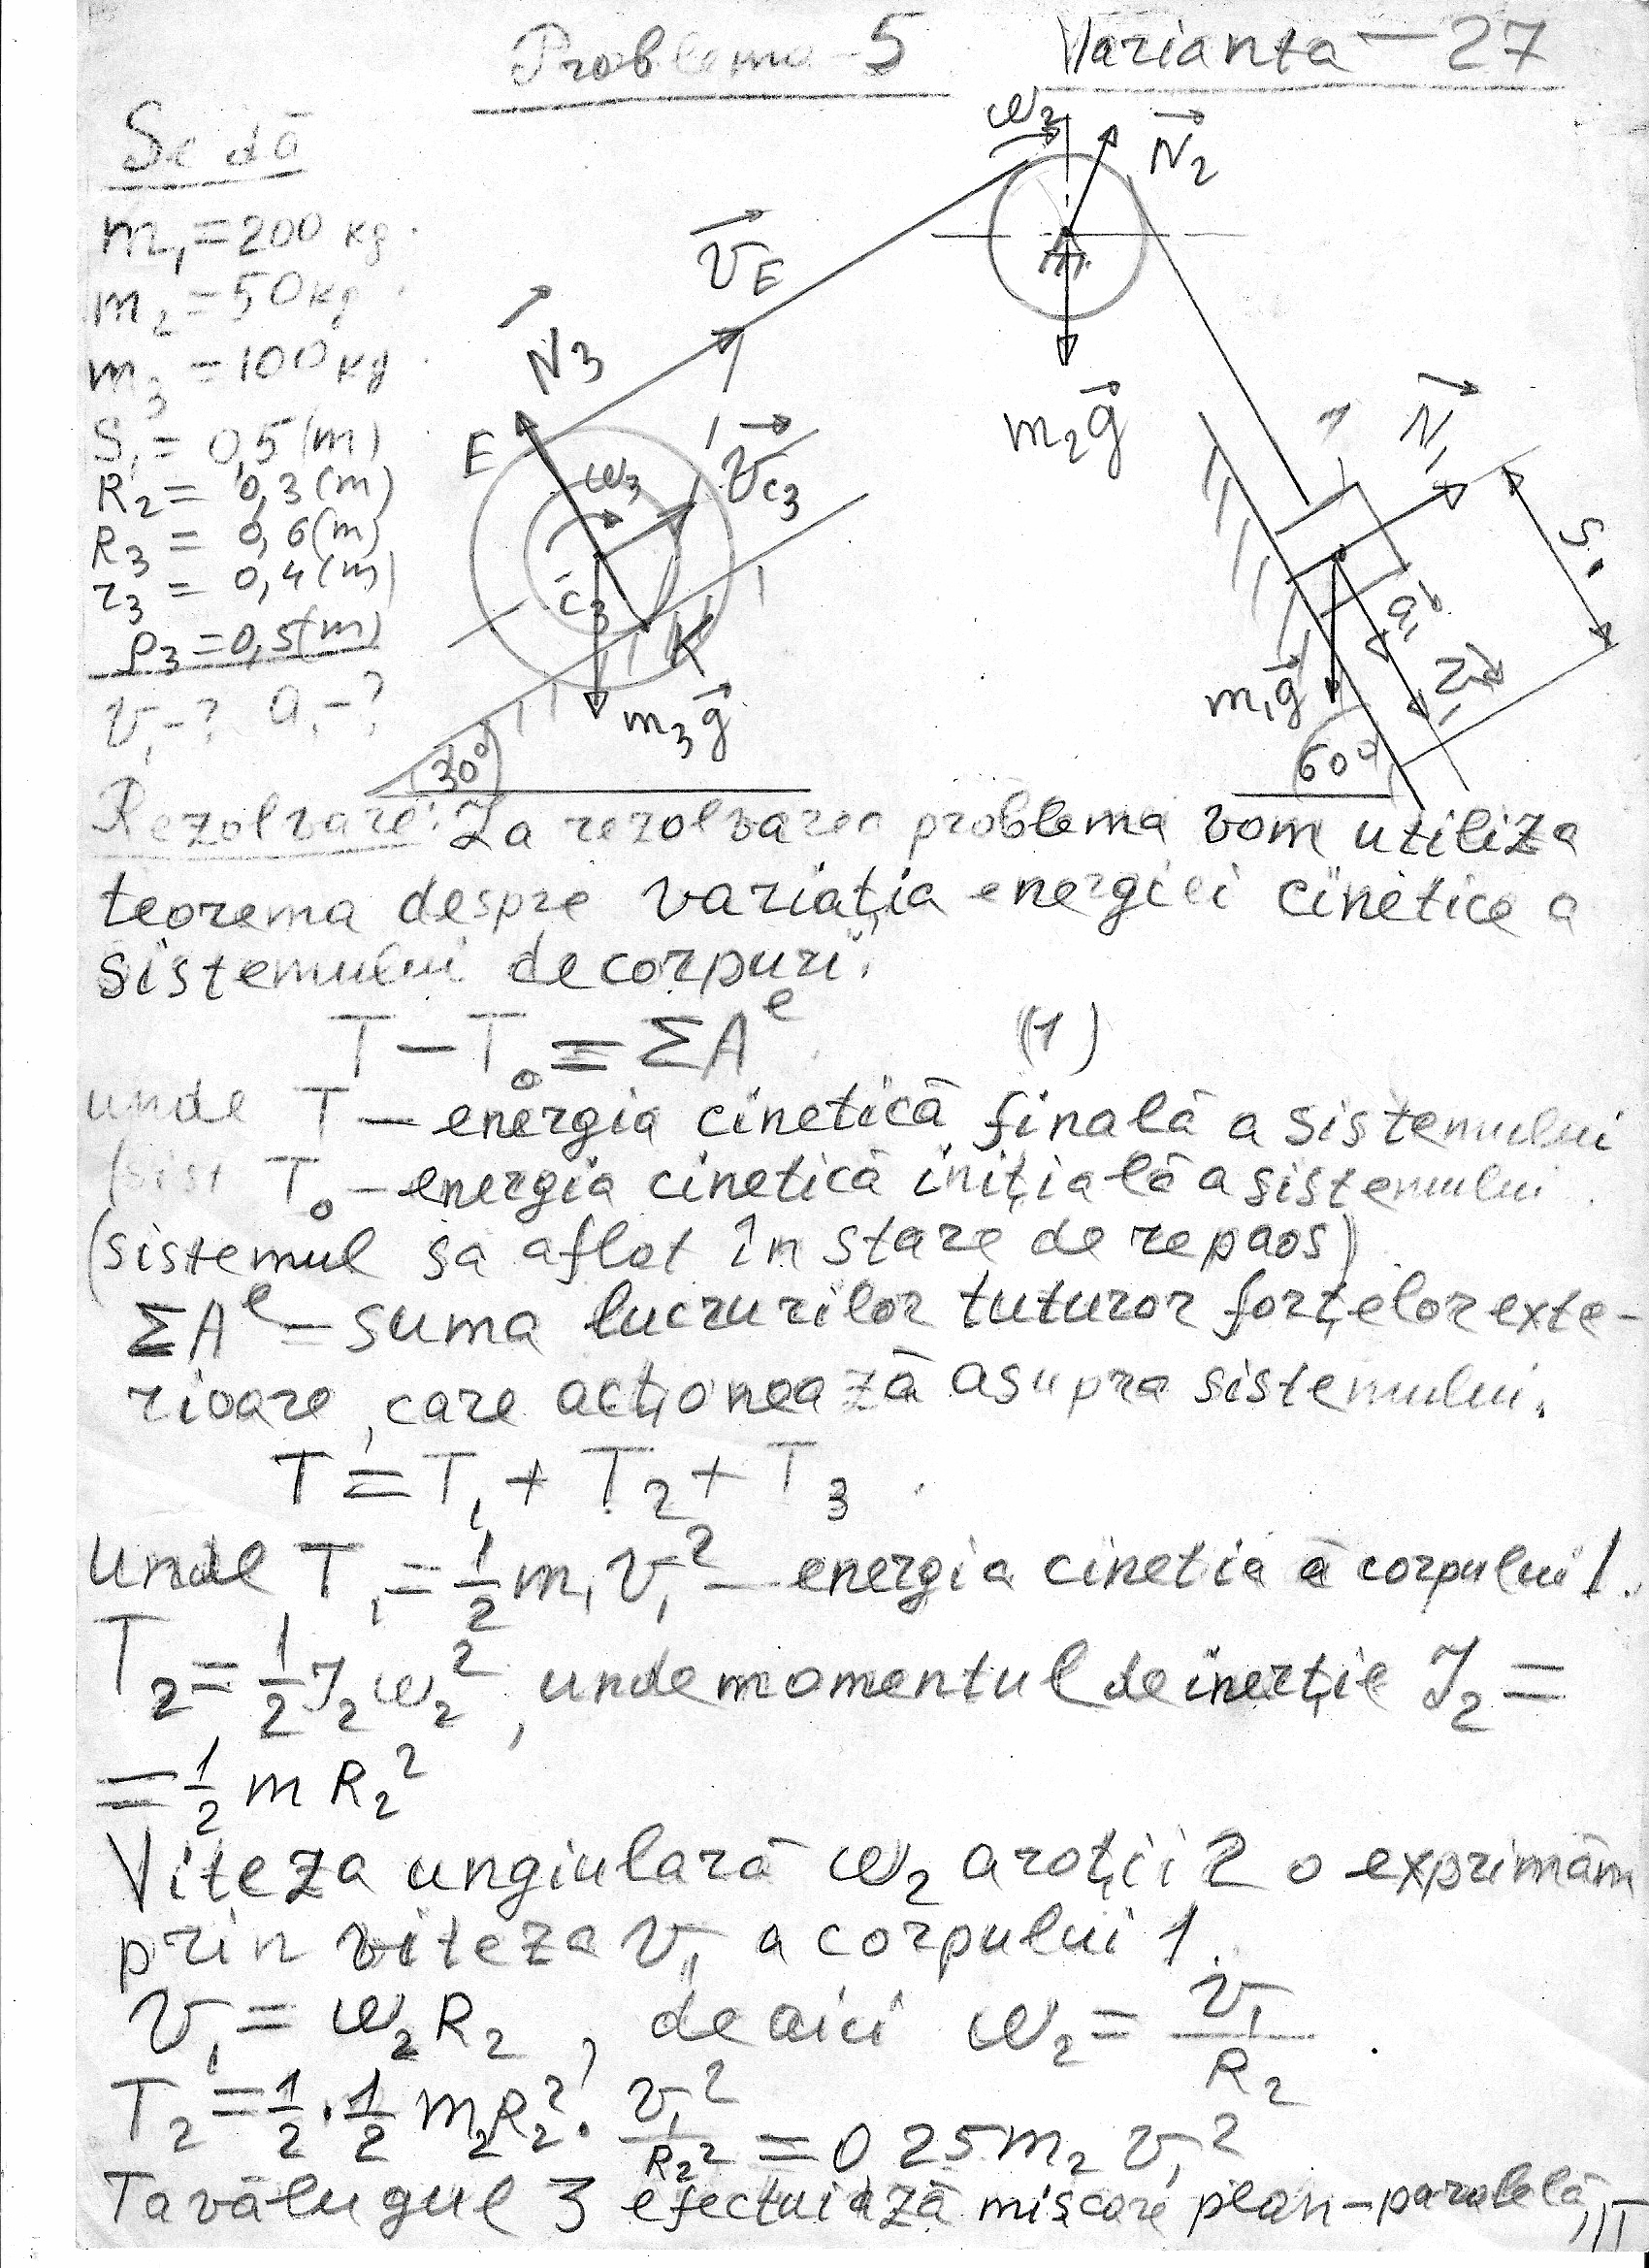 Problema-5 Varianta-27
Se dă
m₁=200 kg.
m₂=50kg.
m₃=100kg.
S₁=0,5(m)
R₂= 0,3(m)
R₃= 0,6(m)
r₃= 0,4(m)
ρ₃=0,5(m)
v₁-? a₁-?
ω₂
N₂
v_E
N₃
m₂g
N₁
E
ω₃
v_c₃
S₁
C₃
K
a₁
m₃g
m₁g
v₁
30°
60°
Rezolvare: La rezolvarea problema vom utiliza
teorema despre variația energiei cinetice a
sistemului de corpuri:
T-T₀=ΣAᵉ (1)
unde T-energia cinetică finală a sistemului
T₀-energia cinetică inițială a sistemului
(sistemul sa aflat în stare de repaos)
ΣAᵉ-suma lucrurilor tuturor forțelor exte-
rioare, care acționează asupra sistemului.
T=T₁+T₂+T₃
unde T₁=1/2 m₁v₁²-energia cinetia a corpului 1.
T₂=1/2 J₂ω₂², unde momentul de inerție J₂=
=1/2 m R₂²
Viteza ungiulară ω₂ a roții 2 o exprimăm
prin viteza v₁ a corpului 1.
v₁=ω₂R₂, de aici ω₂=v₁/R₂.
T₂=1/2·1/2 m₂R₂²·v₁²/R₂²=0 25m₂v₁²
Tavălugul 3 efectuiază mișcare plan-paralelă,